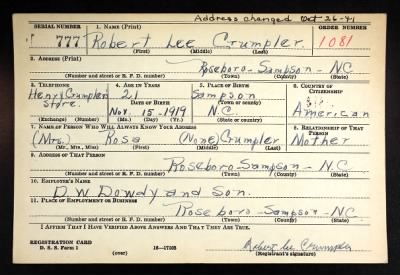 Address changed Oct-26-41
SERIAL NUMBER 1. NAME (Print) ORDER NUMBER
777 Robert Lee Crumpler. 1081
(First) (Middle) (Last)
2. ADDRESS (Print)
Roseboro-Sampson-N.C.
(Number and street or R. F. D. number) (Town) (County) (State)
3. TELEPHONE 4. AGE IN YEARS 5. PLACE OF BIRTH 6. COUNTRY OF CITIZENSHIP
Henry Crumpler 21 Sampson
store. DATE OF BIRTH (Town or county)
Nov. 15-1919 N.C. American
(Exchange) (Number) (Mo.) (Day) (Yr.) (State or country)
7. NAME OF PERSON WHO WILL ALWAYS KNOW YOUR ADDRESS 8. RELATIONSHIP OF THAT PERSON
(Mrs.) Rosa (None) Crumpler Mother
(Mr., Mrs., Miss) (First) (Middle) (Last)
9. ADDRESS OF THAT PERSON
Roseboro-Sampson-N.C.
(Number and street or R. F. D. number) (Town) (County) (State)
10. EMPLOYER'S NAME
D. W. Dowdy and Son.
11. PLACE OF EMPLOYMENT OR BUSINESS
Roseboro-Sampson-N.C.
(Number and street or R. F. D. number) (Town) (County) (State)
I AFFIRM THAT I HAVE VERIFIED ABOVE ANSWERS AND THAT THEY ARE TRUE.
REGISTRATION CARD
D. S. S. Form 1 16-17105 Robert Lee Crumpler
(over) (Registrant's signature)